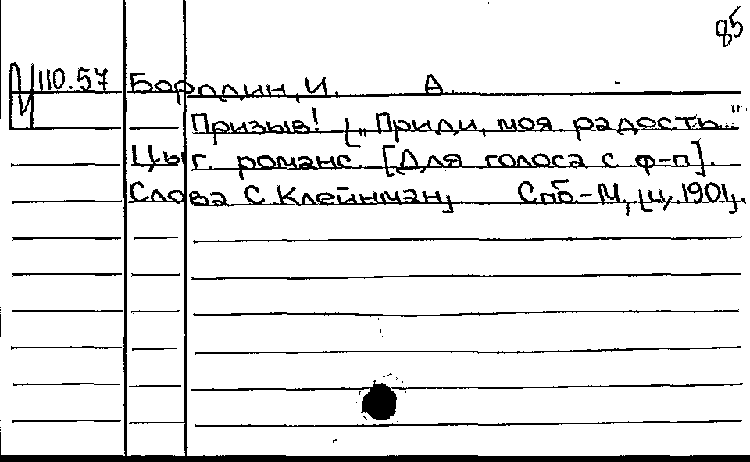 85
М 110.57 Бородин, И. А.
Призыв! [„Приди, моя радость..."
Цыг. романс. [Для голоса с ф-п].
Слова С. Клейнман, Спб.-М, [ц. 1901].